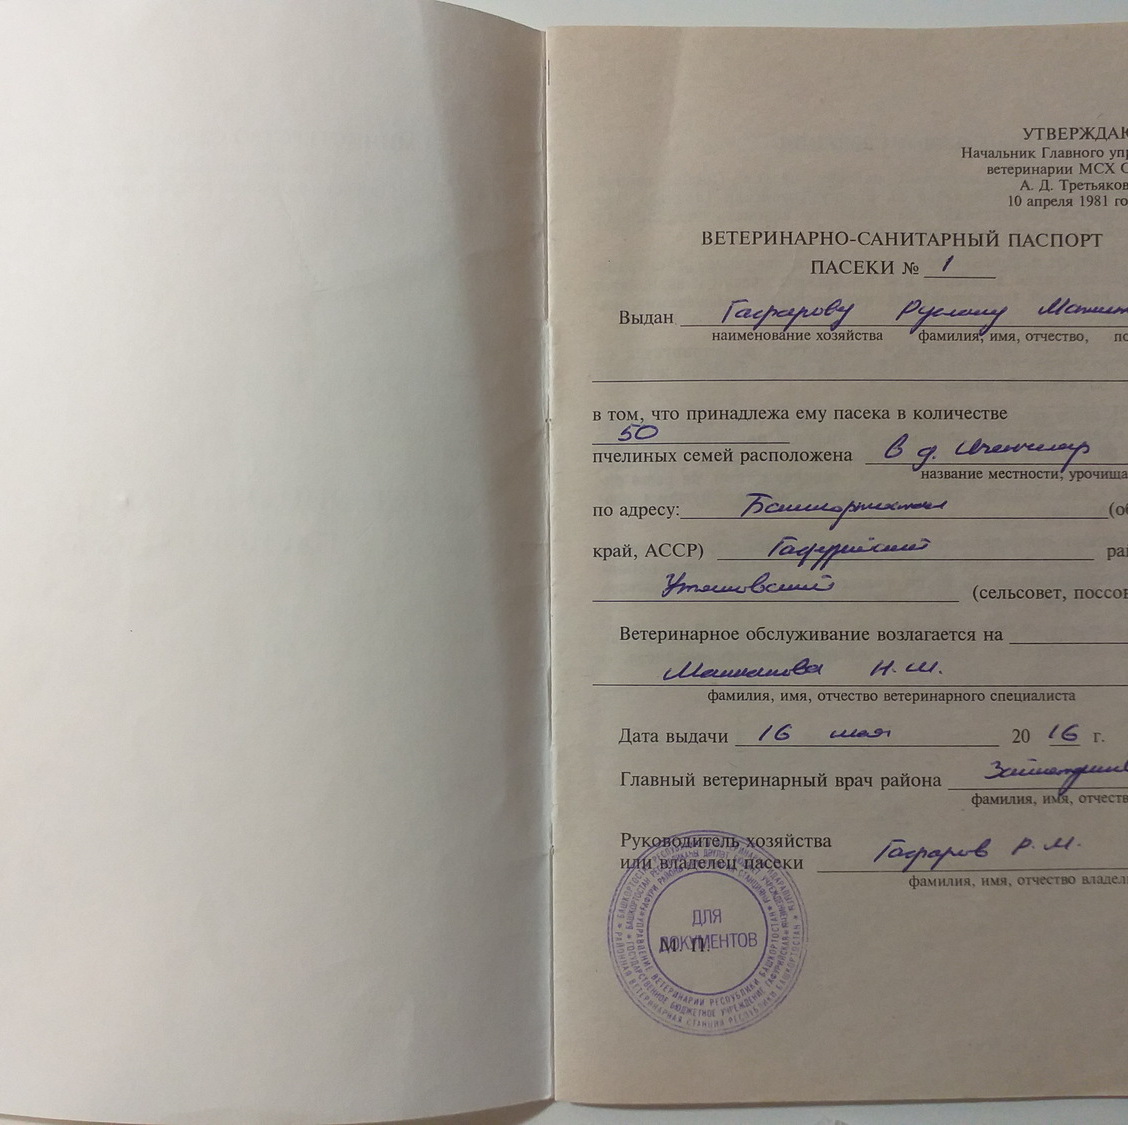 УТВЕРЖДАЮ
Начальник Главного упр
ветеринарии МСХ С
А. Д. Третьяков
10 апреля 1981 го
ВЕТЕРИНАРНО-САНИТАРНЫЙ ПАСПОРТ
ПАСЕКИ № 1
Выдан Гафарову Руслану
наименование хозяйства фамилия, имя, отчество,
в том, что принадлежа ему пасека в количестве
50
пчелиных семей расположена в д.
название местности, урочища
по адресу: Башкортостан
край, АССР) Гафурийский
Утяковский (сельсовет, поссов
Ветеринарное обслуживание возлагается на
Н. М.
фамилия, имя, отчество ветеринарного специалиста
Дата выдачи 16 мая 20 16 г.
Главный ветеринарный врач района
фамилия, имя, отчеств
Руководитель хозяйства
или владелец пасеки Гафаров Р. М.
фамилия, имя, отчество владел
ДЛЯ
ДОКУМЕНТОВ
М. П.
УПРАВЛЕНИЕ ВЕТЕРИНАРИИ РЕСПУБЛИКИ БАШКОРТОСТАН
ГОСУДАРСТВЕННОЕ БЮДЖЕТНОЕ УЧРЕЖДЕНИЕ ГАФУРИЙСКАЯ
РАЙОННАЯ ВЕТЕРИНАРНАЯ СТАНЦИЯ РЕСПУБЛИКИ БАШКОРТОСТАН